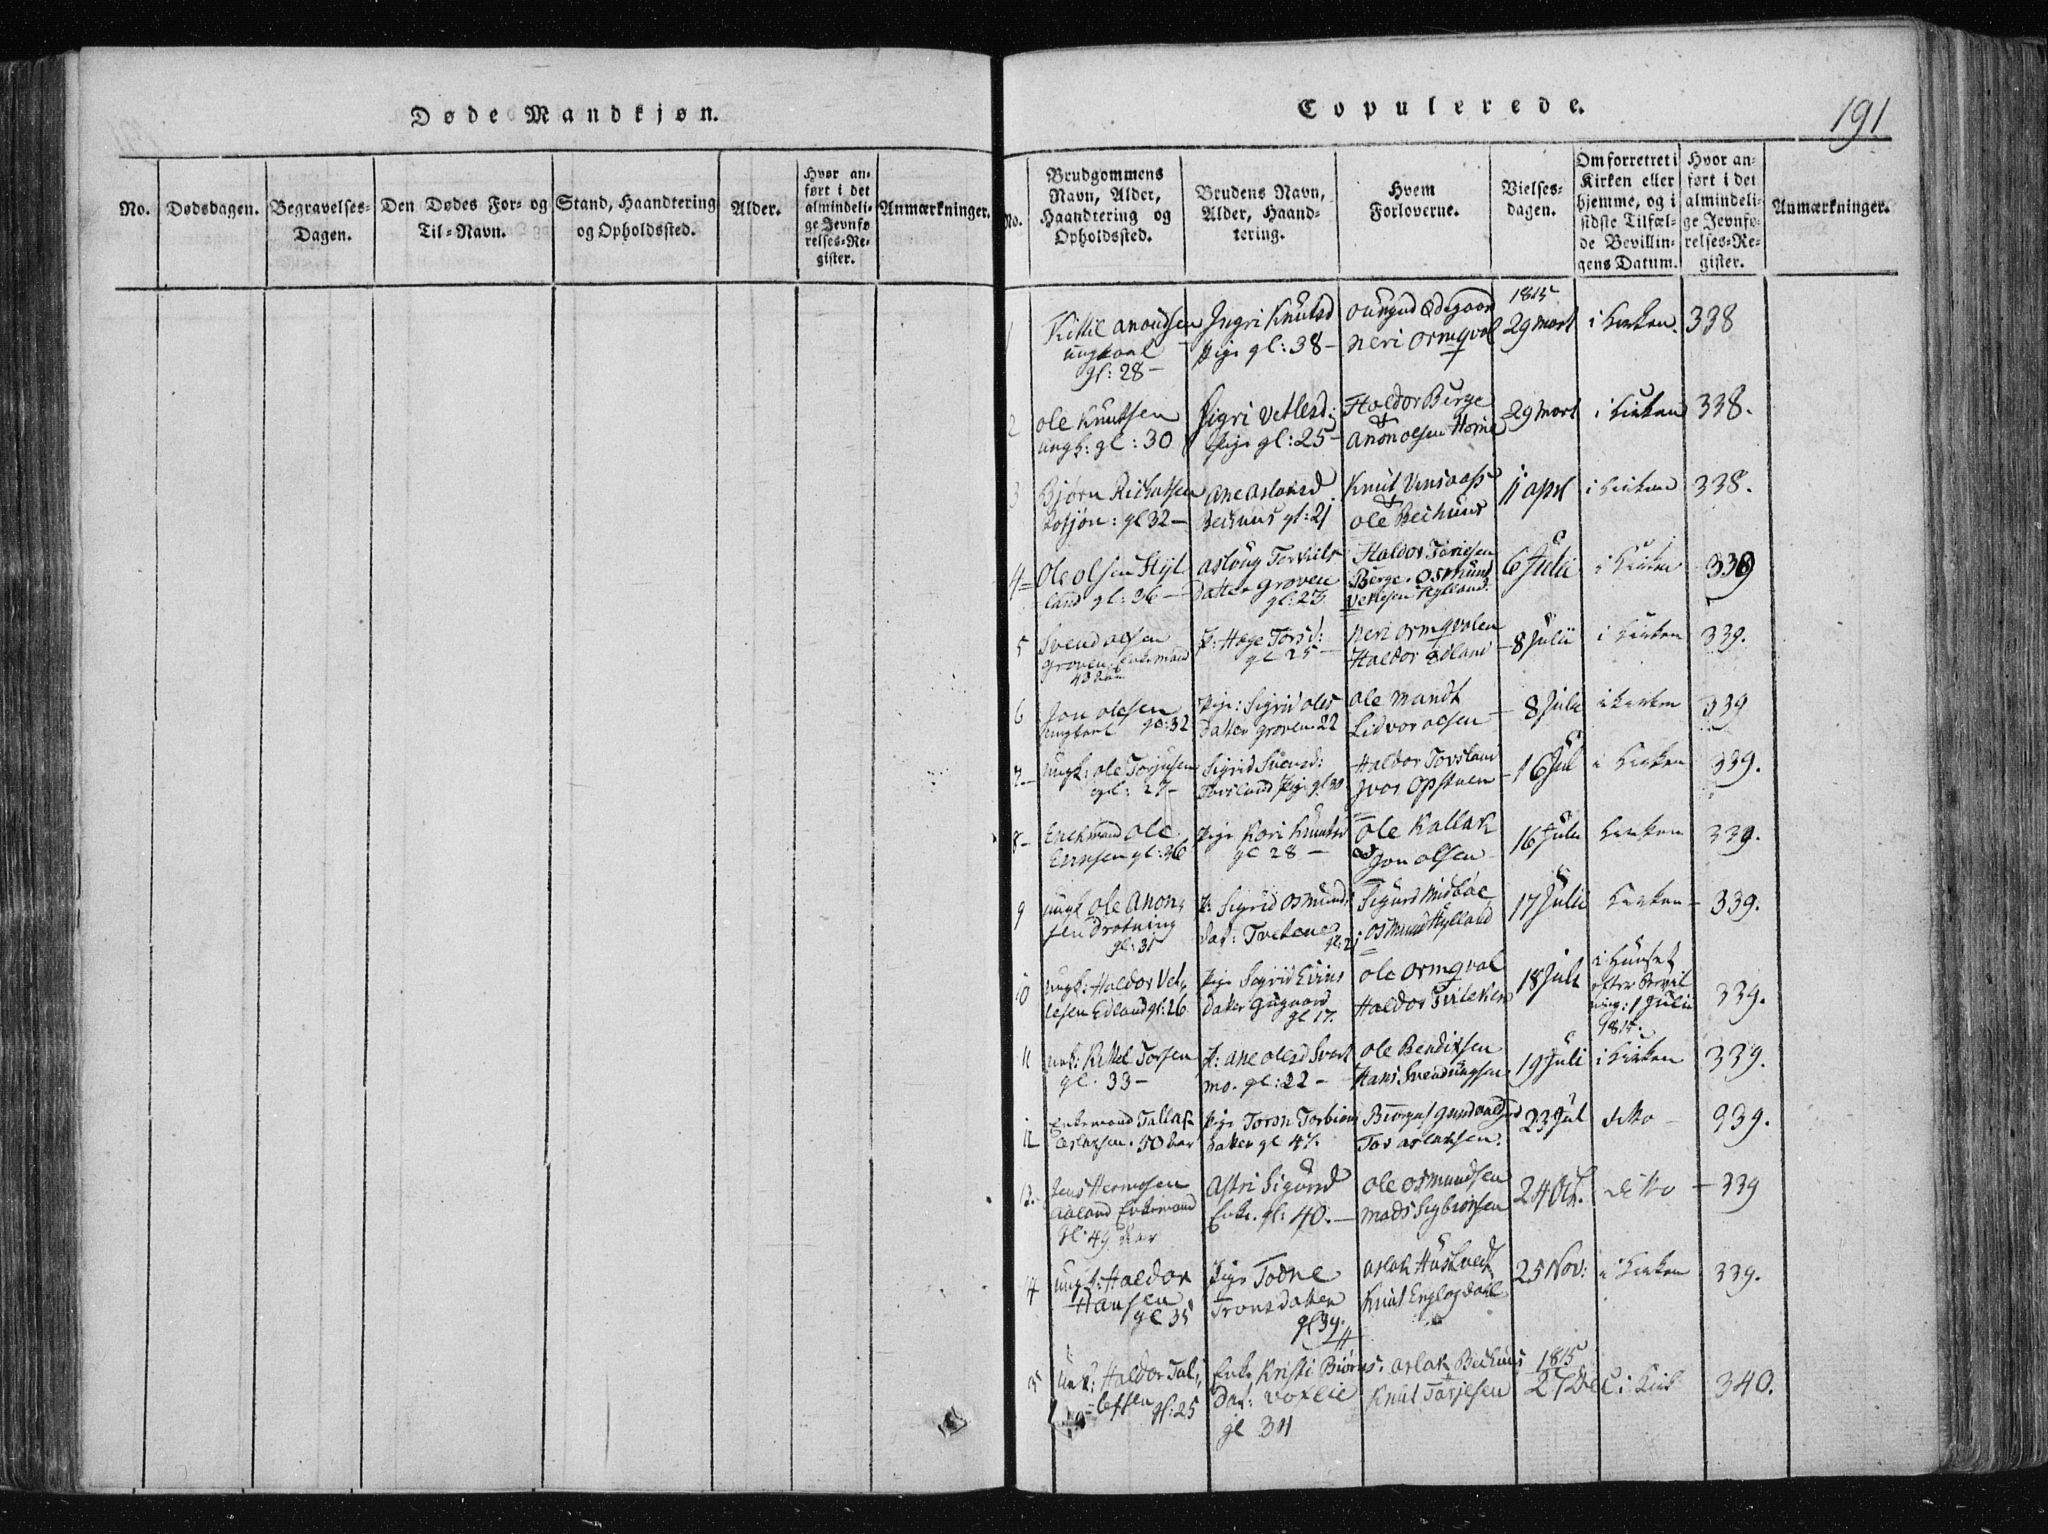 Døde Mandkjøn.
No.
Dødsdagen.
Begravelses-
Dagen.
Den Dødes For- og
Til-Navn.
Stand, Haandtering
og Opholdssted.
Alder.
Hvor an-
ført i det
almindeli-
ge Jevnfø-
relses-Re-
gister.
Anmærkninger.
Copulerede.
191
No.
Brudgommens
Navn, Alder,
Haandtering og
Opholdssted.
Brudens Navn,
Alder, Haand-
tering.
Hvem
Forloverne.
Vielses-
dagen.
Om forretret i
Kirken eller
hjemme, og i
sidste Tilfæl-
de Bevillin-
gens Datum.
Hvor an-
ført i det
almindeli-
ge Jevnfø-
relses-Re-
gister.
Anmærkninger.
1
Kittil Anondsen
ungkaal
gl: 28 -
Ingri Knutsd
Pige gl: 38 -
Ødegaard
Neri Ormqval
1815
29 Mart
i Kirken
338
2
Ole Knutsen
ungk: gl: 30
Sigri Vetlesd:
Pige gl: 25 -
Haldor Berge
Anon olsen
29 Mart
i Kirken
338.
3
Bjørn
gl 32 -
Ane Aslaksd
gl: 21
Knut
Ole
11 apr
i Kirken
338.
4 -
Ole Olsen Hyl
land gl: 36 -
Aslaug Torkils
Datter Groven
gl: 23
Haldor
Berge. Osmund
Vetlesen Hylland.
6 Julii
i Kirken
339
5
Svend olsen
Groven Enkemand
43 aar
P: Hæge Torsd:
gl 25 -
Neri Ormqvalen
Haldor Edland
8 Julii
i Kirken
339.
6
Jon olesen
ungkarl gl: 32
Pige: Sigrid oles
Datter Groven 22
Ole Mandt
Lidvor olsen
8 Juli
i kirken
339
7 -
Ungk: ole Torjusen
gl: 27 -
Sigrid Svensd:
Haldor Torsland
Ivar Opstuen
16 Jul
i Kirken
339.
8 -
Enkemand Ole
gl: 36
Pige Kari Knutsd
gl 28 -
Ole Kallak
Jon olsen
16 Julii
Kirken
339.
9
ungk ole Anon,
sen Drotning
gl: 31
P: Sigrid Osmunds
dat: Tveitene gl: 21
Sigurd Midbøe
Osmund Hylland
17 Julii
Kirken
339.
10
Ungk: Haldor Vet,
lesen Edland gl: 26
Pige Sigrid
Datter
gl 17.
Ole Ormqval
Haldor
18 Juli
i Huuset
efter Bevil
ning: 1 Julii
1815.
339.
11
unk: Kittel Torsen
gl. 33 -
P: Ane olesd
mo. gl: 22 -
Ole Bendixsen
Hans Svendungsen
19 Juli
i Kirken
339.
12
Enkemand Tallaf
Aslaksen. 50 aar
Pige Toron Torbiøns
Datter gl 47.
Tor Aslaksen.
23 Jul
ditto -
339.
13.
Jens Hermosen
Aaland Enkemand
gl: 49 aar
Astri Sigurd
Enke. gl: 40. -
Ole Osmundsen
Mads Sigbiørnsen
24 Oct.
ditto -
339
14
ungk: Haldor
Hansen
gl 35
Pige Todne
Tronsdatter
gl 39.
Aslak Huustvedt
Knut
25 Nov:
i Kirken
339.
15
Unk: Haldor Tal,
lefsen gl: 25
Enke Kristi Biørns,
Dat: Voxlie
gl 34
Aslak
Knut Tarjesen
1815
27 Dec
i Kirk
340.